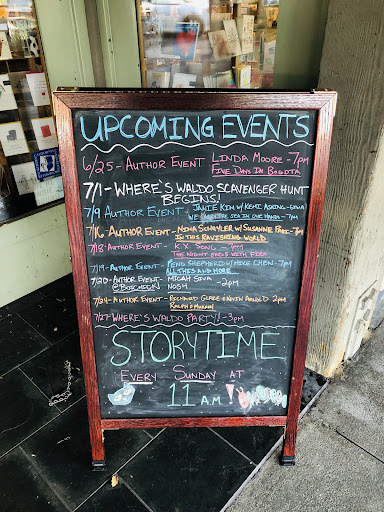 UPCOMING EVENTS
6/25 - AUTHOR EVENT LINDA MOORE - 7PM
FIVE DAYS IN BOGOTA
7/1 - WHERE'S WALDO SCAVENGER HUNT
BEGINS!
7/9 AUTHOR EVENT - JANIE KIM W/ KEMI
WE CARRY THE SEA IN OUR HANDS - 7PM
7/16 - AUTHOR EVENT - NINA SCHUYLER W/ SUSANNE PARI - 7PM
IN THIS RAVISHING WORLD
7/18 - AUTHOR EVENT - K.X. SONG - 7PM
THE NIGHT ENDS WITH FIRE
7/19 - AUTHOR EVENT - PENG SHEPHERD W/ MIKE CHEN - 7PM
ALL THIS AND MORE
7/20 - AUTHOR EVENT - MICAH SIVA - 2PM
@ NOSH
7/24 - AUTHOR EVENT - RICHARD 2PM
7/27 WHERE'S WALDO PARTY! - 3PM
STORYTIME
EVERY SUNDAY AT
11 AM!